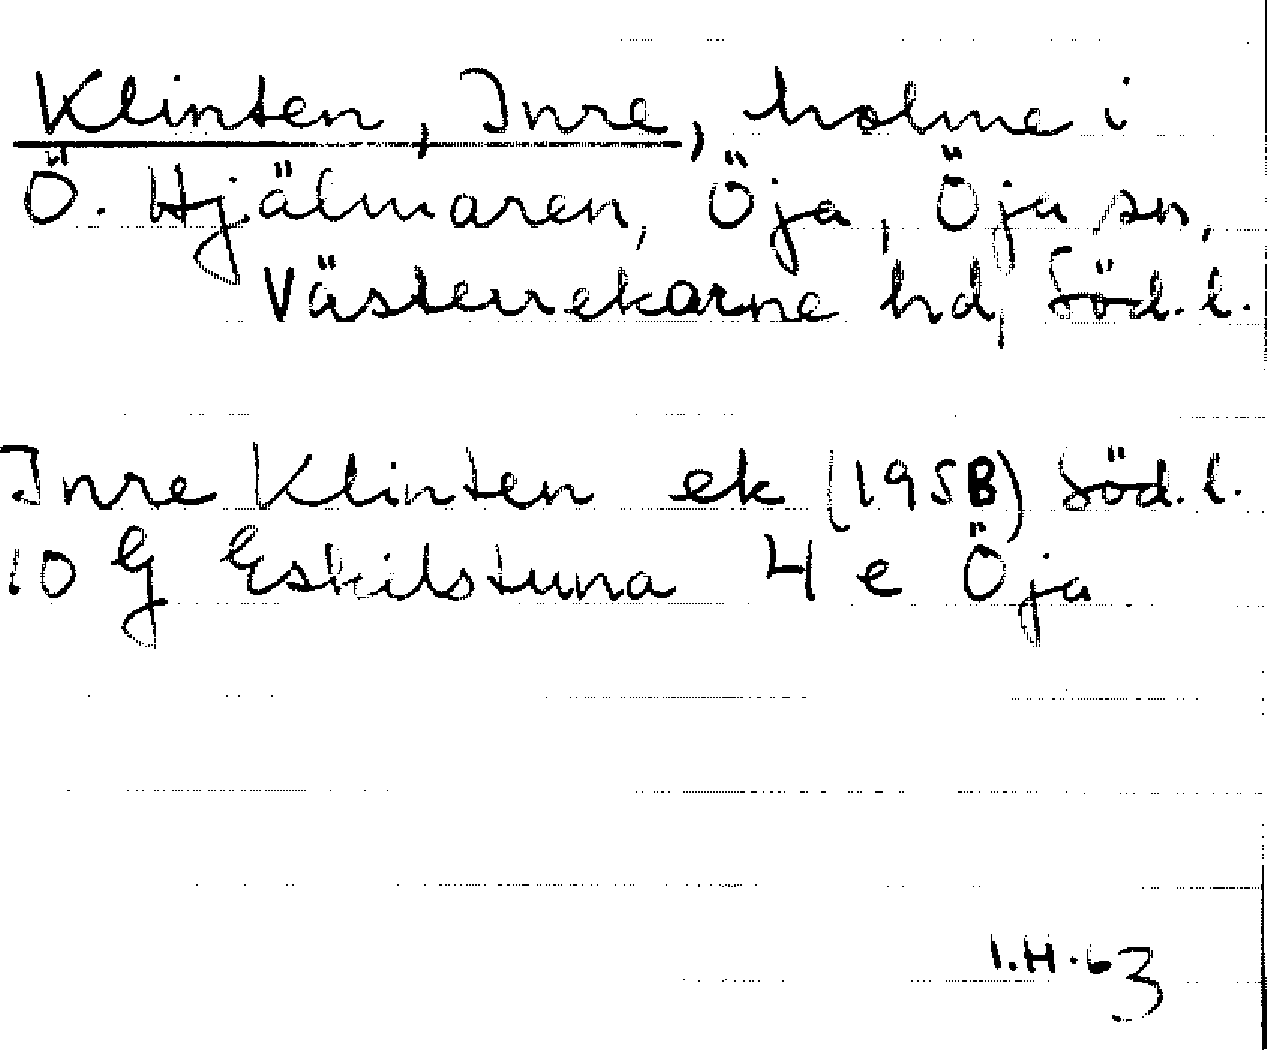 Klinten, Inre, holme i
Ö. Hjälmaren, Öja, Öja sn,
Västerrekarne hd, Söd. l.
Inre Klinten ek (1958) Söd. l.
10 G Eskilstuna 4 e Öja
I.H. 63